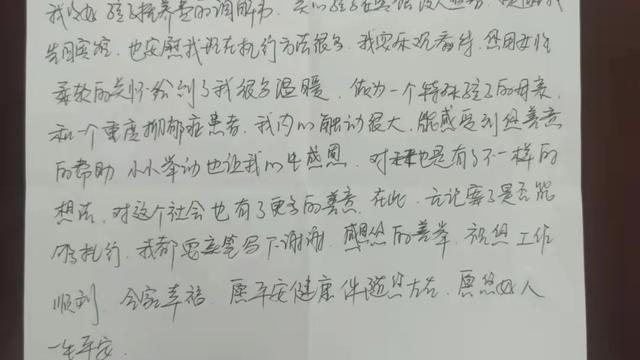 我收到孩子抚养费的调解书
告周宾宾，也安慰我现在执行方法很多，我要乐观看待，您用女性
柔软的关怀给到了我很多温暖，做为一个特殊孩子的母亲
和一个重度抑郁症患者，我内心触动很大，能感受到您善意
的帮助，小小举动也让我心生感恩，对未来也是有了不一样的
想法，对这个社会也有了更多的善意，在此，无论案子是否能
够执行，我都要亲笔写下谢谢，感恩您的善举，祝您工作
顺利，全家幸福，愿平安健康伴随您左右，愿您好人
一生平安。